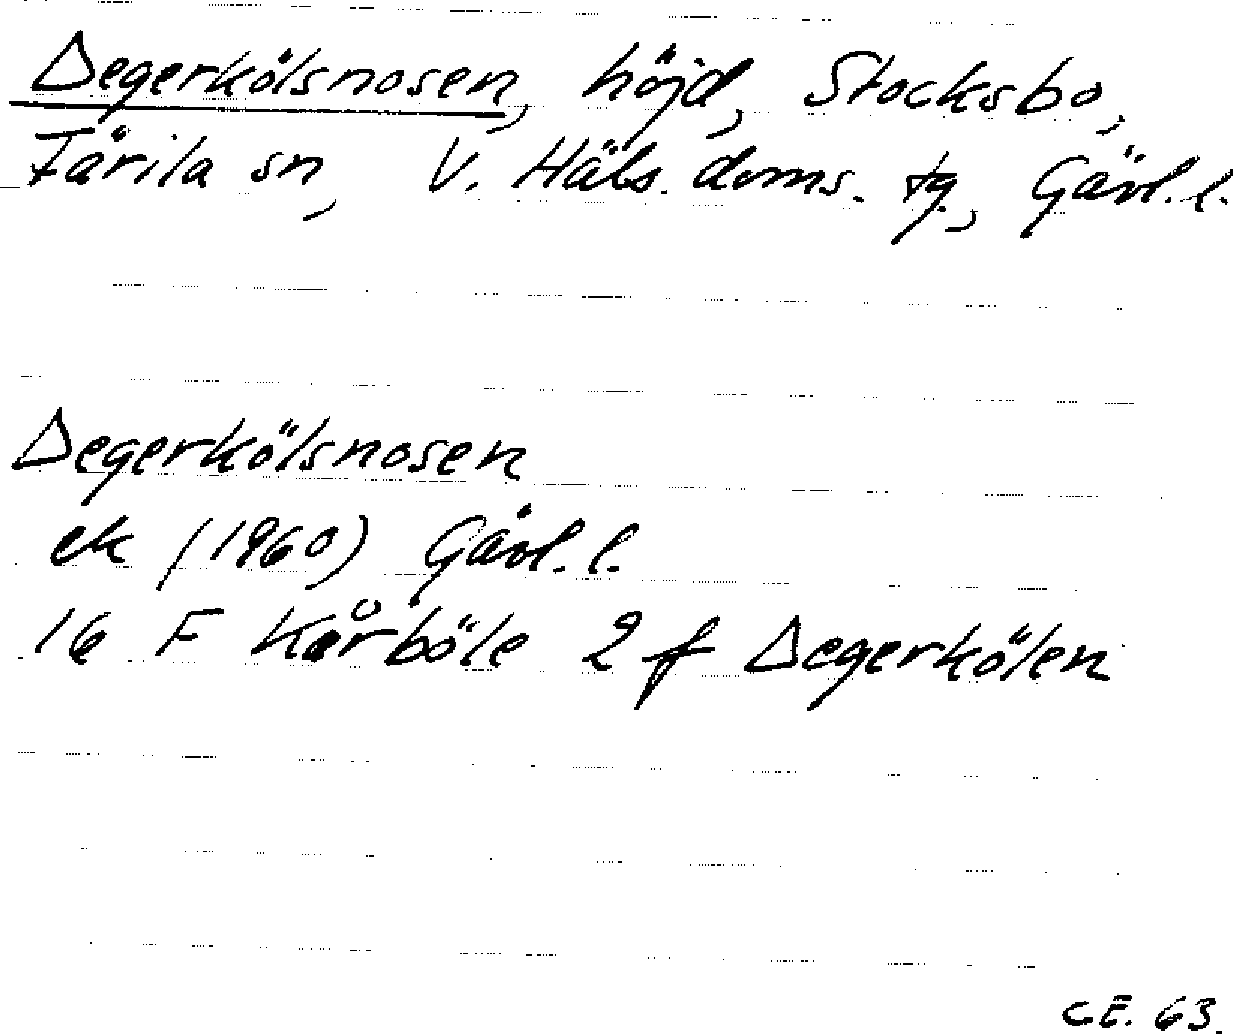 Degerkölsnosen, höjd, Stocksbo,
Färila sn, V. Häls. doms. tg., Gävl. l.
Degerkölsnosen
ek (1960) Gävl. l.
16 F Kårböle 2 f Degerkölen
C.E. 63.